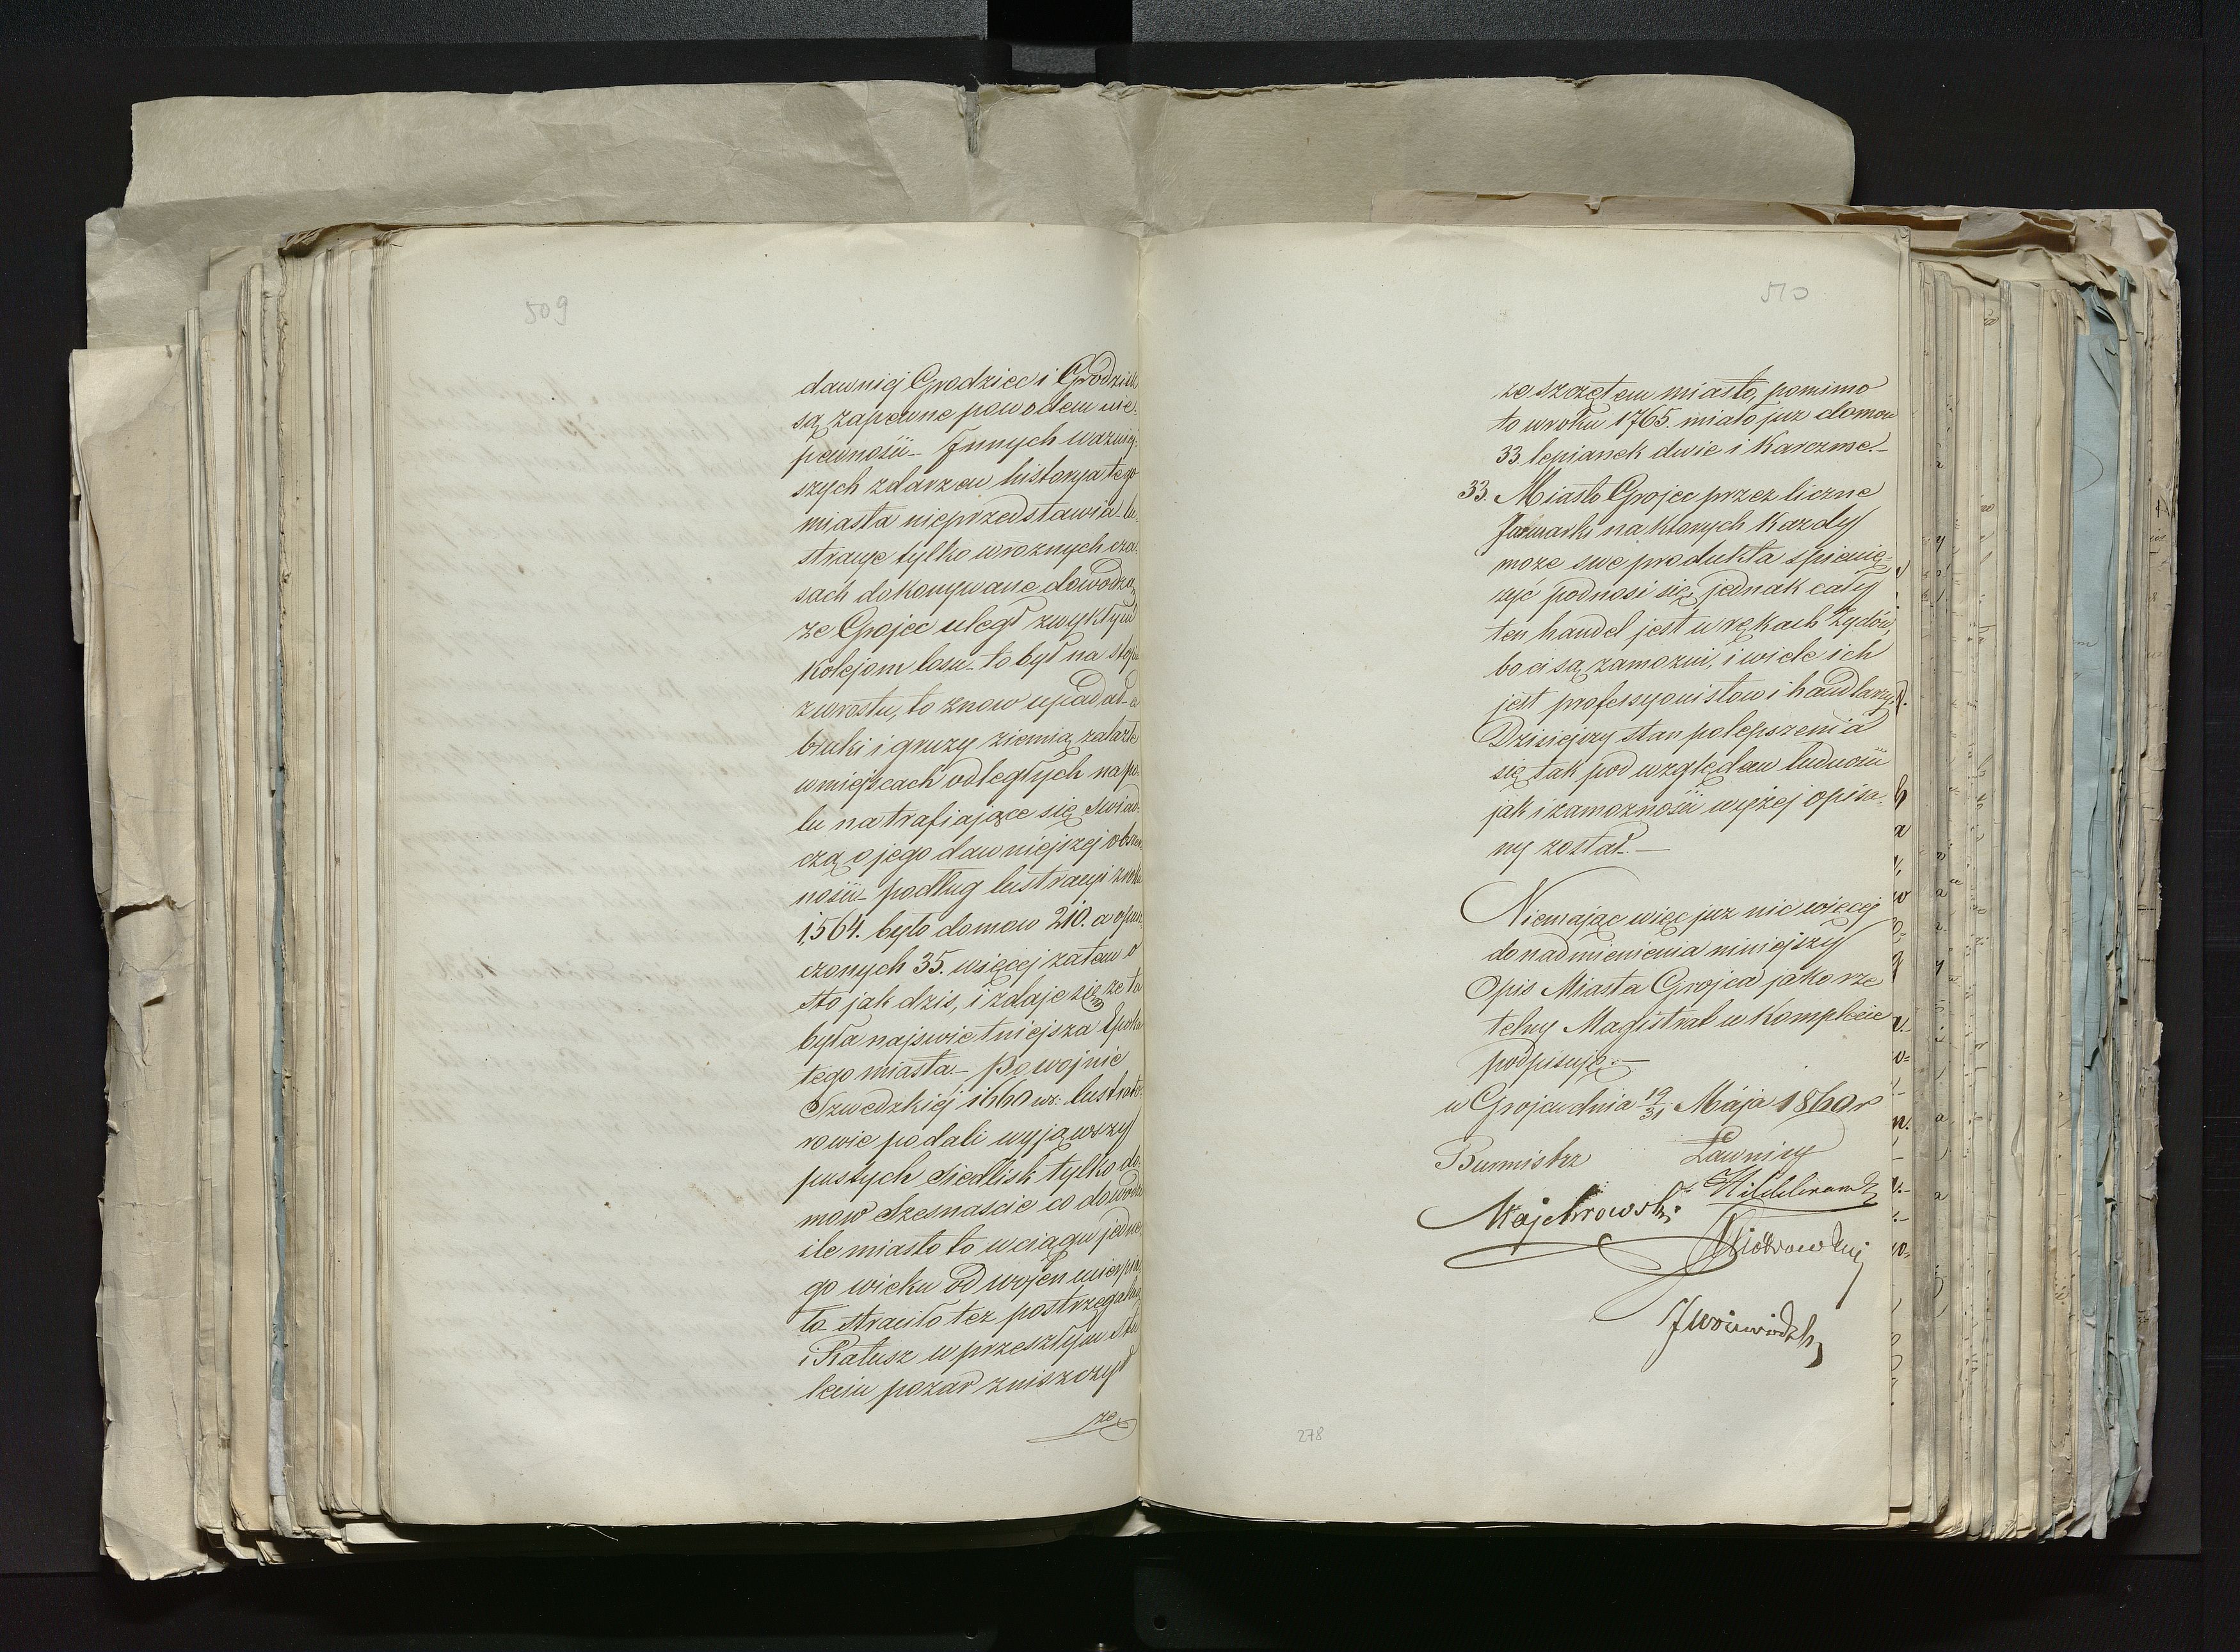 509
dawniej Grodziec i Grodzisk
są zapewne powodem nie-
pewności_ Innych ważniej-
szych zdarzeń historya tego
miasta nieprzedstawia_ lu-
stracye tylko w roznych cza-
sach dokonywane dowodzą
że Grojec uległ zwykłym
Kolejom losu_ to był na stopniu
zwrostu, to znow upadał_ a
bruki i gruzy ziemią zalazłe
w miejscach odległych na po-
lu natrafiające się swiad-
czą o jego dawniejszej obszer-
ności_ podług lustracyi z roku
1,564. było domow 210. a opusz-
czonych 35. więcej zatem o
sto jak dzis, i zdaje się że to
była najswietniejsza Epoka
tego miasta._ Po wojnie
Szwedzkiéj 1660 r. lustrato-
rowie podali wyjąwszy
pustych Siedlisk tylko do-
mow szesnascie co dowodzi
ile miasto to w ciągu jedne-
go wieku od wojen ucierpia-
ło straciło też postrzegalną
i Ratusz w przeszłym Stu-
leciu pożar zniszczył
ze
510
ze szczętem miasto, pomimo
to w roku 1765. miało juz domow
33 lepianek dwie i Karczme._
33. Miasto Grojec przez liczne
Jarmarki na ktorych Kazdy
może swe produkta spienię-
żyć podnosi się, jednak cały
ten handel jest w rękach Żydów,
bo ci są zamożni, i wiele ich
jest professyonistow i handlarzy.
Dzisiejszy stan polepszenia
się tak pod względem ludności
jak i zamożności wyżej opisa-
ny został._
Niemając więc juz nic więcej
do nadmienienia niniejszy
Opis Miasta Grojca jako rze
telny Magistrat w Komplecie
podpisuje._
w Grojcu dnia 19/31 Maja 1860 r
Burmistrz Ławnicy
Majchrowski Hildebrandt
Piotrowski
278